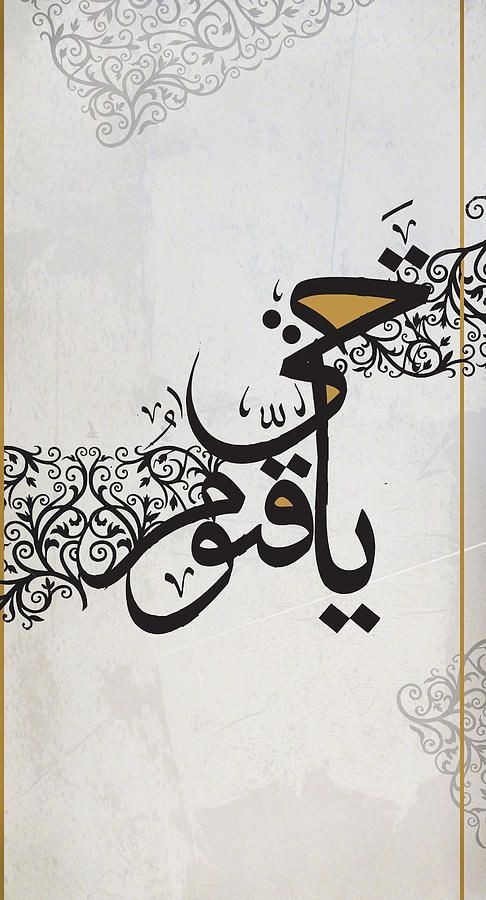 يا حَيُّ
قَيُّومُ